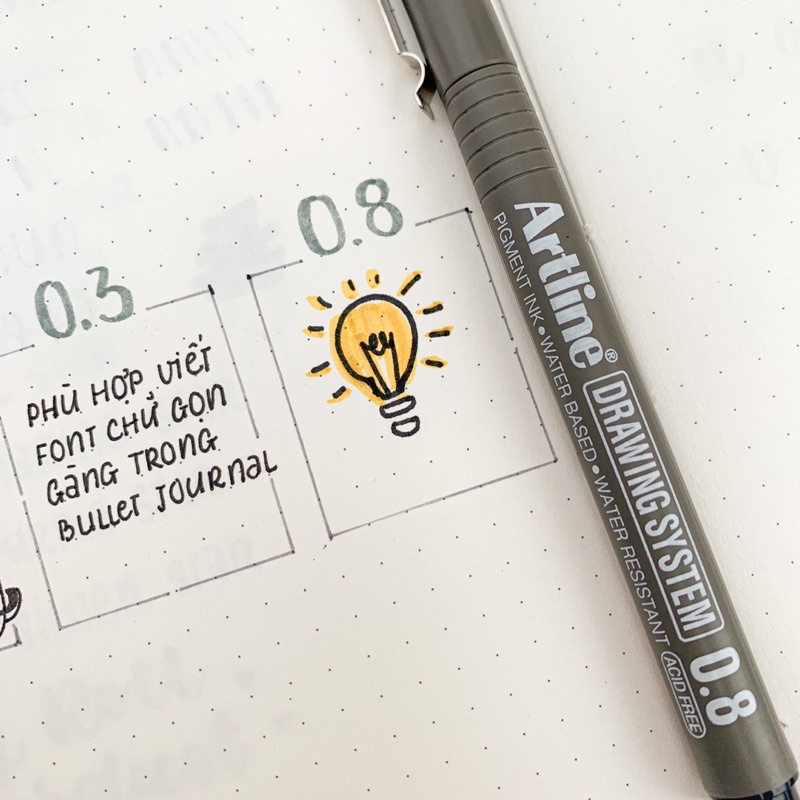 0.3
PHÙ HỢP VIẾT
FONT CHỮ GỌN
GÀNG TRONG
BULLET JOURNAL
0.8
Artline®
PIGMENT INK • WATER BASED • WATER RESISTANT
DRAWING SYSTEM
ACID FREE
0.8